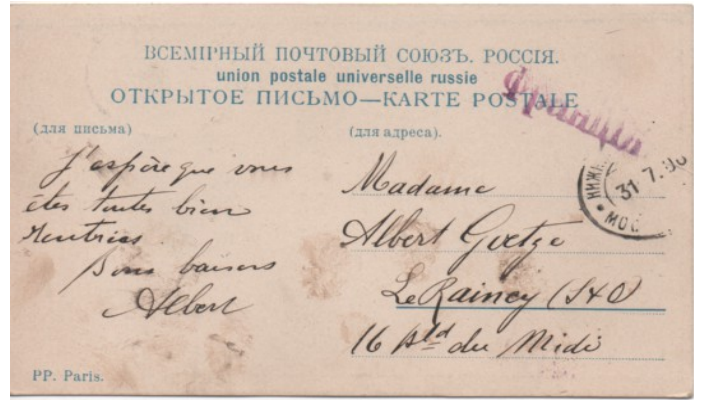 ВСЕМІРНЫЙ ПОЧТОВЫЙ СОЮЗЪ. РОССІЯ.
union postale universelle russie
ОТКРЫТОЕ ПИСЬМО—KARTE POSTALE
Франція
(для письма)
(для адреса).
J'espère que vous
êtes toutes bien
rentrées.
Bons baisers
Albert
Madame
Albert Goetze
Le Raincy (S&O)
16 Bld du Midi
31 7.
МОС
PP. Paris.